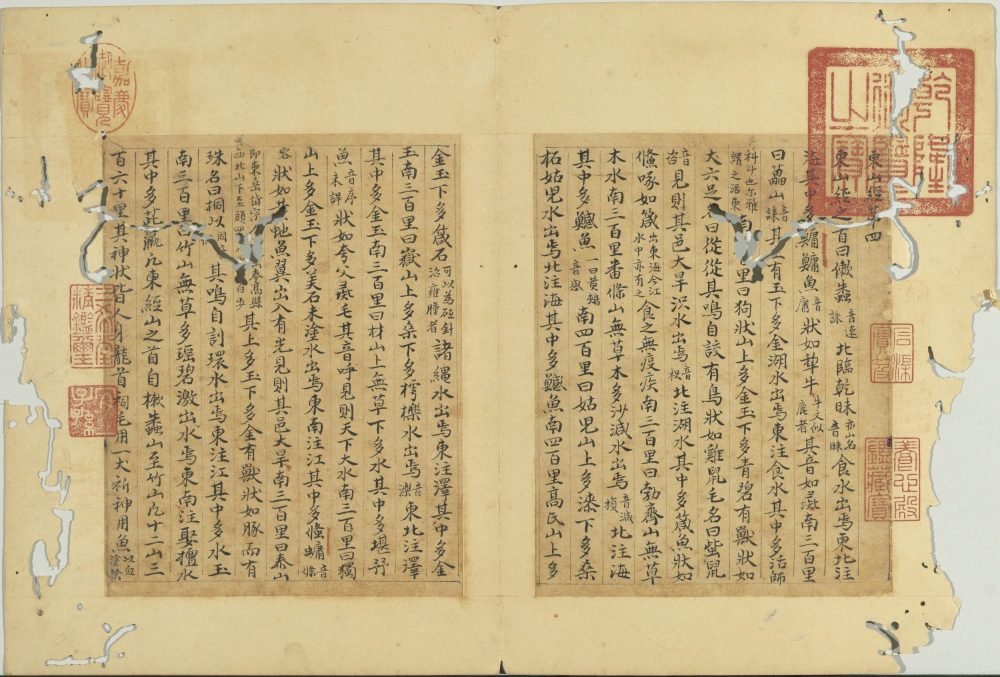 乾隆御覽之寶
東山經第四
東山經之首曰樕䗤音速株北臨乾昧亦山名音昧食水出焉東北注
海其中多鱅鱅魚音庸狀如犂牛牛又似鹿者其音如彘南三百里
曰藟山音誄其上有玉下多金湖水出焉東注食水其中多活師
科斗也尔雅謂之活東南里曰狗狀山上多金玉下多青碧有獸狀如
犬六足名曰從從其鳴自詨有鳥狀如雞鼠毛名曰蚩鼠
音咨見則其邑大旱沢水出焉音枳北注湖水其中多箴魚狀如
儵喙如箴出東海今江水中亦有之食之無疫疾南三百里曰勃齊山無草
木水南三百里番條山無草木多沙減水出焉音減損北注海
其中多鱤魚一曰黃頰音感南四百里曰姑皃山上多漆下多桑
柘姑皃水出焉北注海其中多鱤魚南四百里高氏山上多
石渠寶笈
養心殿鑑藏寶
金玉下多箴石可以為砭針治癰腫者諸繩水出焉東注澤其中多金
玉南三百里曰嶽山上多桑下多樗櫟水出焉音濼東北注澤
其中多金玉南三百里曰犲山上無草下多水其中多堪㐨
魚音序未詳狀如夸父彘毛其音呼見則天下大水南三百里曰獨
山上多金玉下多美石末塗水出焉東南注江其中多䖺蠕音條
容狀如黃虵魚翼出入有光見則其邑大旱南三百里曰泰山
即東岳岱宗奉高縣西北山下至頭四百步其上多玉下多金有獸狀如豚而有
珠名曰狪以其鳴自訆環水出焉東注江其中多水玉
南三百里曰竹山無草多瑶碧激出水焉東南注娶檀水
其中多茈蠃凡東經山之首自樕䗤山至竹山凡十二山三
百六十里其神狀皆人身龍首祠毛用一犬祈神用魚以血塗祭
嘉慶御覽之寶
三希堂精鑑璽
宜子孫